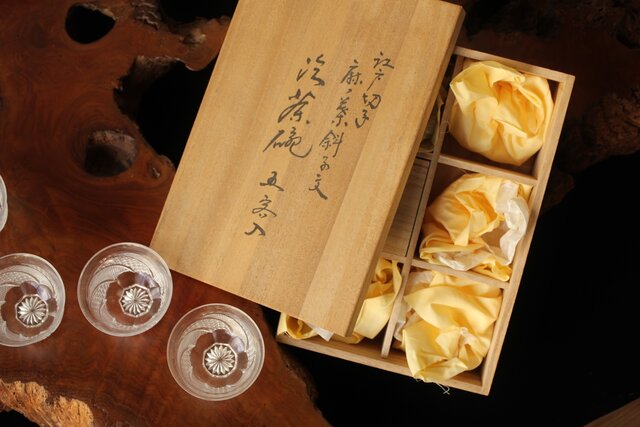 江戸切子
麻ノ葉斜子文
冷茶碗 五客入